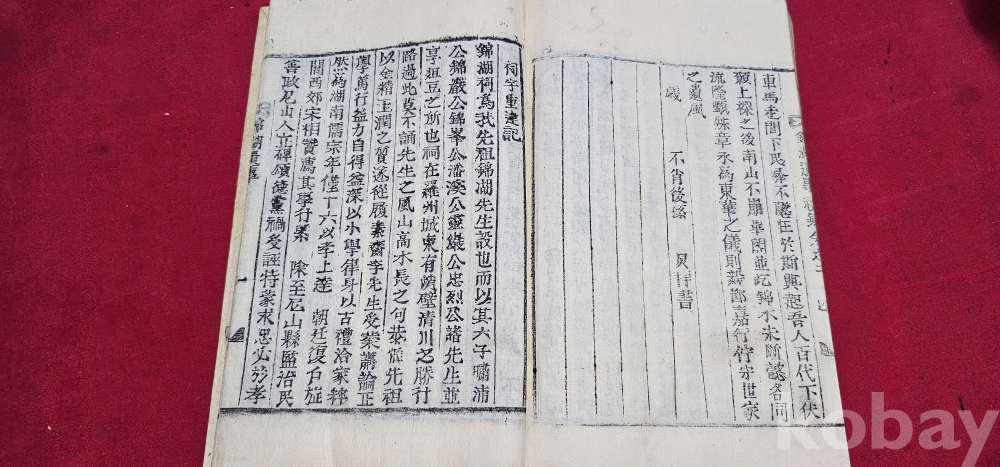 車馬走閭下民舉不駿狂於斯興起吾人百代下伏
願上樑之後南山不崩華閣並屹錦水未斷懿名同
流隆顯殊章永爲東華之儀則毅鄭嘉行竹宗世家
之遺風
歲　不肖後
祠宇重建記
錦湖祠爲我先祖錦湖先生設也而以其六子嘯浦
公錦巖公錦峯公潘溪公靈巖公忠烈公諸先生並
享俎豆之所也祠在羅州城東有錦壁清川之勝行
路過此莫不誦先生之風山高水長之句恭惟先祖
以金精玉潤之質遂從履素齋李先生受業講論正
學萬行益方自得益深以小學律身以古禮治家粹
然爲湖南儒宗年僅十六以孝上達　朝廷復戶旌
閭西郊宋相贊薦其學行累　除至尼山縣監治民
善政尼山人立碑頌德黨禍受誣特蒙求忠必於孝
一
kobay